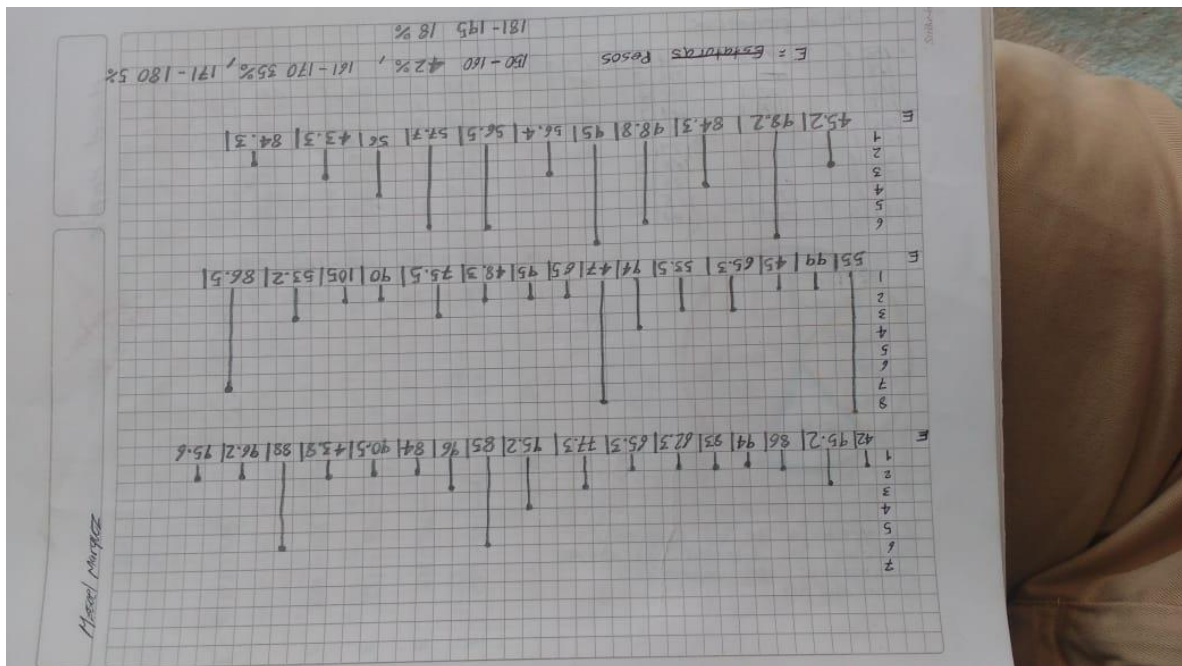 Marquez
7
6
5
4
3
2
1
E 42|95.2|86|94|93|62.3|65.3|77.3|95.2|85|96|84|90.5|43.8|88|96.2|95.6
8
7
6
5
4
3
2
1
E 55|99|45|65.3|55.5|94|47|65|95|48.3|75.5|90|105|53.2|86.5|
6
5
4
3
2
1
E 45.2|48.2|84.3|48.8|45|56.4|56.5|57.7|56|43.3|84.3|
E = Estaturas Pesos 150-160 42%, 161-170 35%, 171-180 5%
181-195 18%